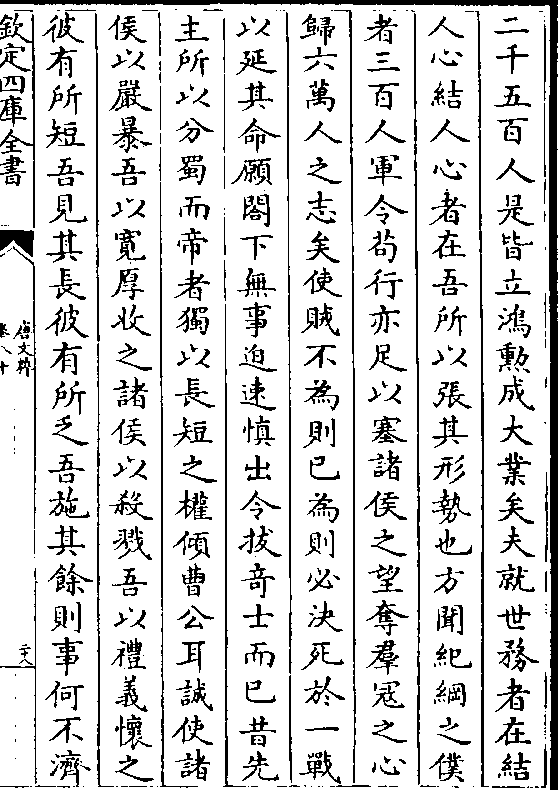 二千五百人是皆立鴻勲成大業矣夫就世務者在結
人心結人心者在吾所以張其形勢也方聞紀綱之僕
者三百人軍令茍行亦足以塞諸侯之望奪羣冦之心
歸六萬人之志矣使賊不為則已為則必決死於一戰
以延其命願閣下無事迫速慎出令拔竒士而已昔先
主所以分蜀而帝者獨以長短之權傾曹公耳誠使諸
侯以嚴暴吾以寛厚收之諸侯以殺戮吾以禮義懷之
彼有所短吾見其長彼有所乏吾施其餘則事何不濟
欽定四庫全書
唐文粹
卷八十
二十八